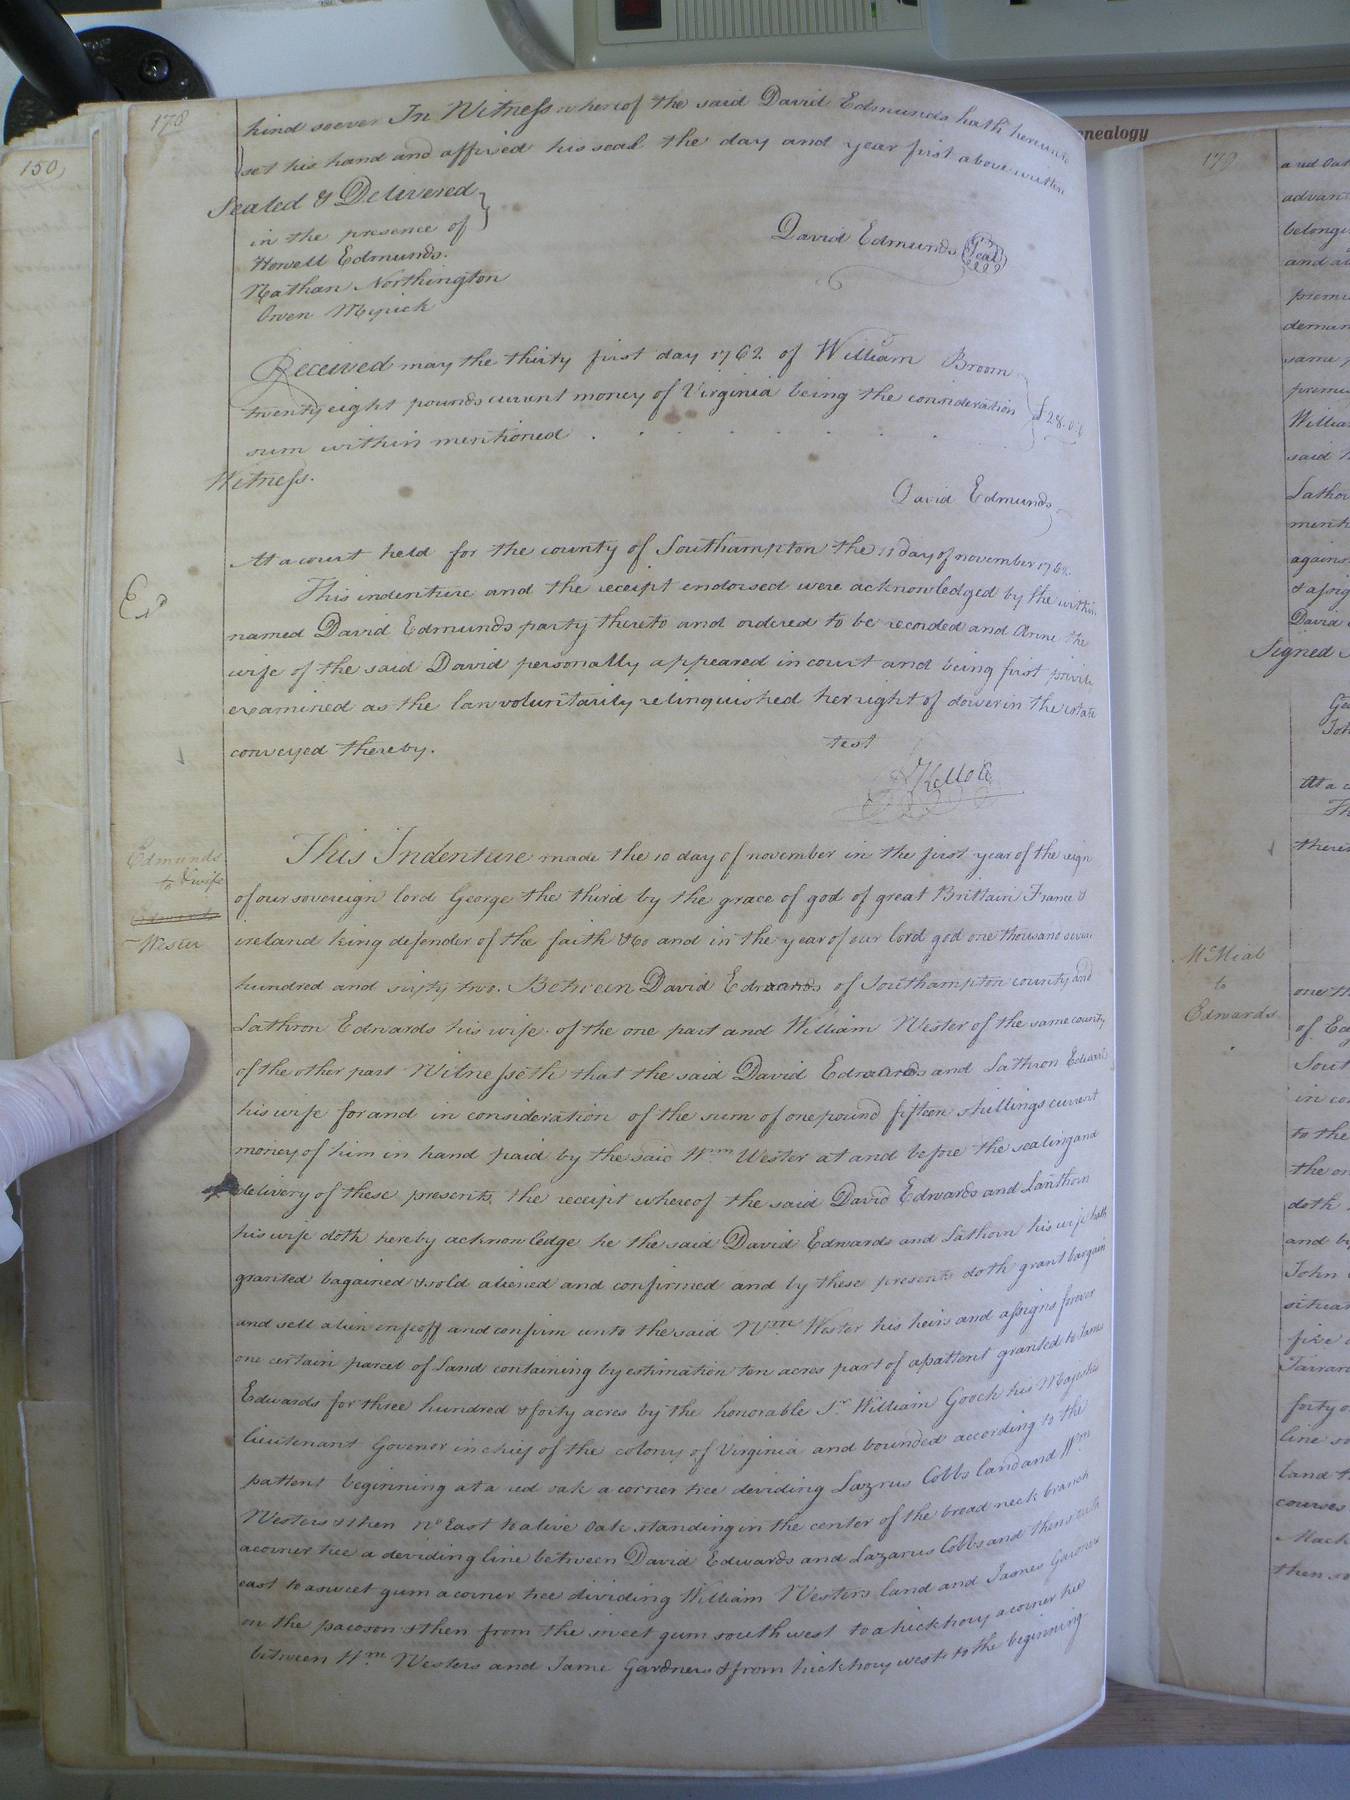 150
178
kind soever In Witness whereof the said David Edmunds hath hereunto
set his hand and affixed his seal the day and year first above written
Sealed & Delivered
in the presence of
Howell Edmunds.
Nathan Northington
Owen Myrick
David Edmunds Seal
Received may the thirty first day 1762 of William Broom
twenty eight pounds curent money of Virginia being the consideration
£28.0.0
sum within mentioned
Witness.
David Edmunds
At a court held for the county of Southampton the 11 day of november 1762
Exd
This indenture and the receipt endorsed were acknowledged by the within
named David Edmunds party thereto and ordered to be recorded and Anne the
wife of the said David personally appeared in court and being first privily
examined as the law voluntarily relinquished her right of dower in the estate
conveyed thereby.
test
Edmunds
& wife
to
Edwards
Wester
This Indenture made the 10 day of november in the first year of the reign
of our sovereign lord George the third by the grace of god of great Brittain France &
ireland king defender of the faith &c and in the year of our lord god one thousand seven
hundred and sixty two. Between David Edwards of Southampton county and
Lathron Edwards his wife of the one part and William Wester of the same county
of the other part Witnesseth that the said David Edwards and Lathron Edwards
his wife for and in consideration of the sum of one pound fifteen shillings current
money of him in hand paid by the said Wm Wester at and before the sealing and
delivery of these presents, the receipt whereof the said David Edwards and Lanthorn
his wife doth hereby acknowledge he the said David Edwards and Lathorn his wife hath
granted bagained & sold aliened and confirmed and by these presents doth grant bargain
and sell alien enfeoff and confirm unto the said Wm Wester his heirs and assigns forever
one certain parcel of Land containing by estimation ten acres part of a pattent granted to James
Edwards for three hundred & forty acres by the honorable Sr. William Gooch his Majesties
lieutenant Govenor in chief of the colony of Virginia and bounded according to the
pattent beginning at a red oak a corner tree deviding Lazrus Cobbs land and Wm
Westers & then No East to a live Oak standing in the center of the bread neck branch
a corner tree a deviding line between David Edwards and Lazarus Cobbs and then south
east to a sweet gum a corner tree dividing William Westers land and James Gardner
on the pacoson & then from the sweet gum south west to a hickhory a corner tree
between Wm. Westers and Jame Gardners & from hickhory west to the beginning
enealogy
179
and
advan
belongi
and
premi
deman
same
premi
Willia
said
Lathor
ment
agains
& assig
David
Signed
Ge
Joh
At a c
Th
there
McMial
to
Edwards
one th
of Ed
Sout
in co
to the
the on
doth
and by
John
situa
five
Tarrar
forty
line so
land
courses
Mack
then so